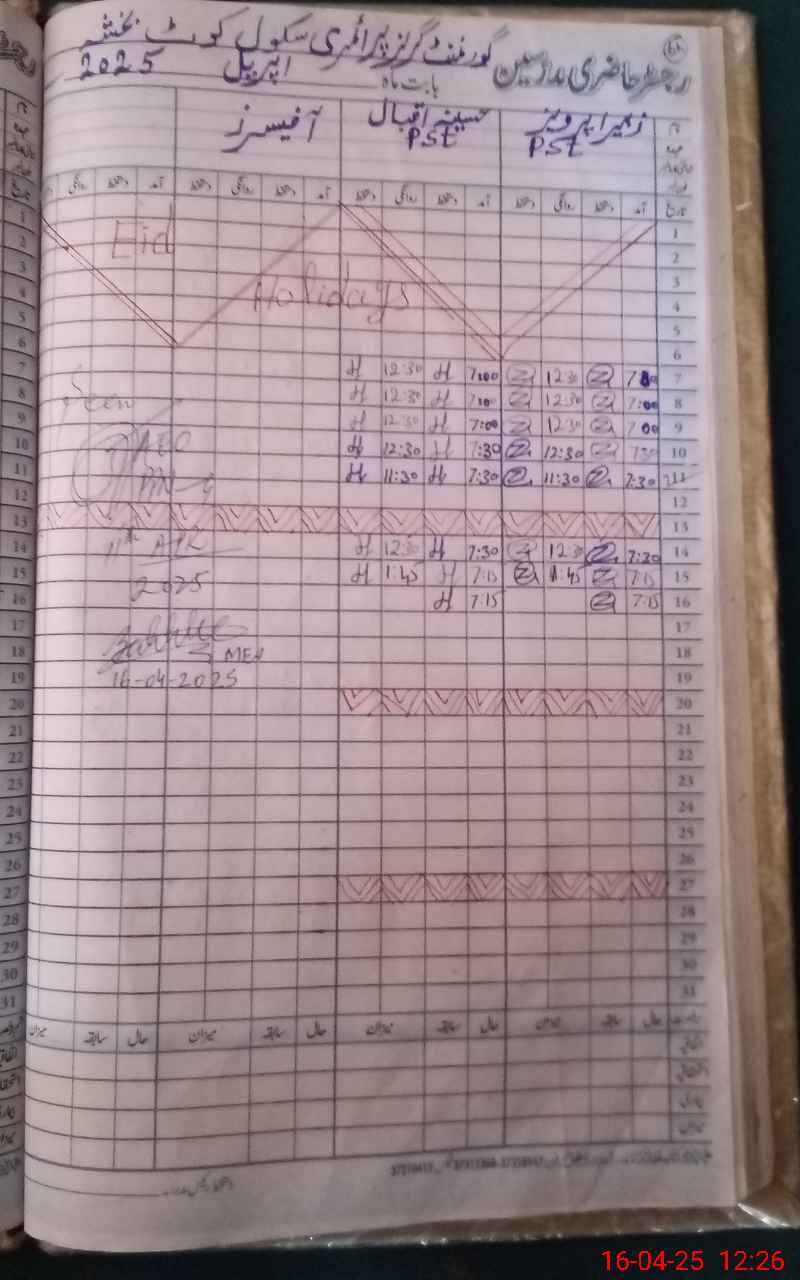 گورنمنٹ گرلز پرائمری سکول کوٹ بخشہ
رجسٹر حاضری مدرسین
بابت ماہ اپریل 2025
زہیرا پرویز حسینہ اقبال آفیسرز
PST PST
تاریخ آمد دستخط روانگی دستخط آمد دستخط روانگی دستخط آمد دستخط روانگی دستخط آمد دستخط روانگی
1
2 Eid
3
4 Holidays
5
6
7 7:00 12:30 H 7:00 H 12:30 H
8 7:00 12:30 H 7:00 H 12:30 H
9 7:00 12:30 H 7:00 H 12:30 H
10 7:30 12:30 H 7:30 H 12:30 H
11 7:30 11:30 H 7:30 H 11:30 H
Seen
AEO
12
13
14 7:30 12:30 H 7:30 H 12:30 H
11th APR
15 7:15 1:45 H 7:15 H 1:45 H
2025
16 7:15 7:15 H
17
18
MEA
19
16-04-2025
20
21
22
23
24
25
26
27
28
29
30
31
حال سابقہ میزان حال سابقہ میزان حال سابقہ میزان حال سابقہ میزان
16-04-25 12:26